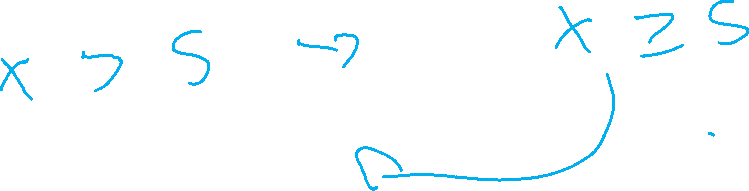 x > 5 → x ≥ 5